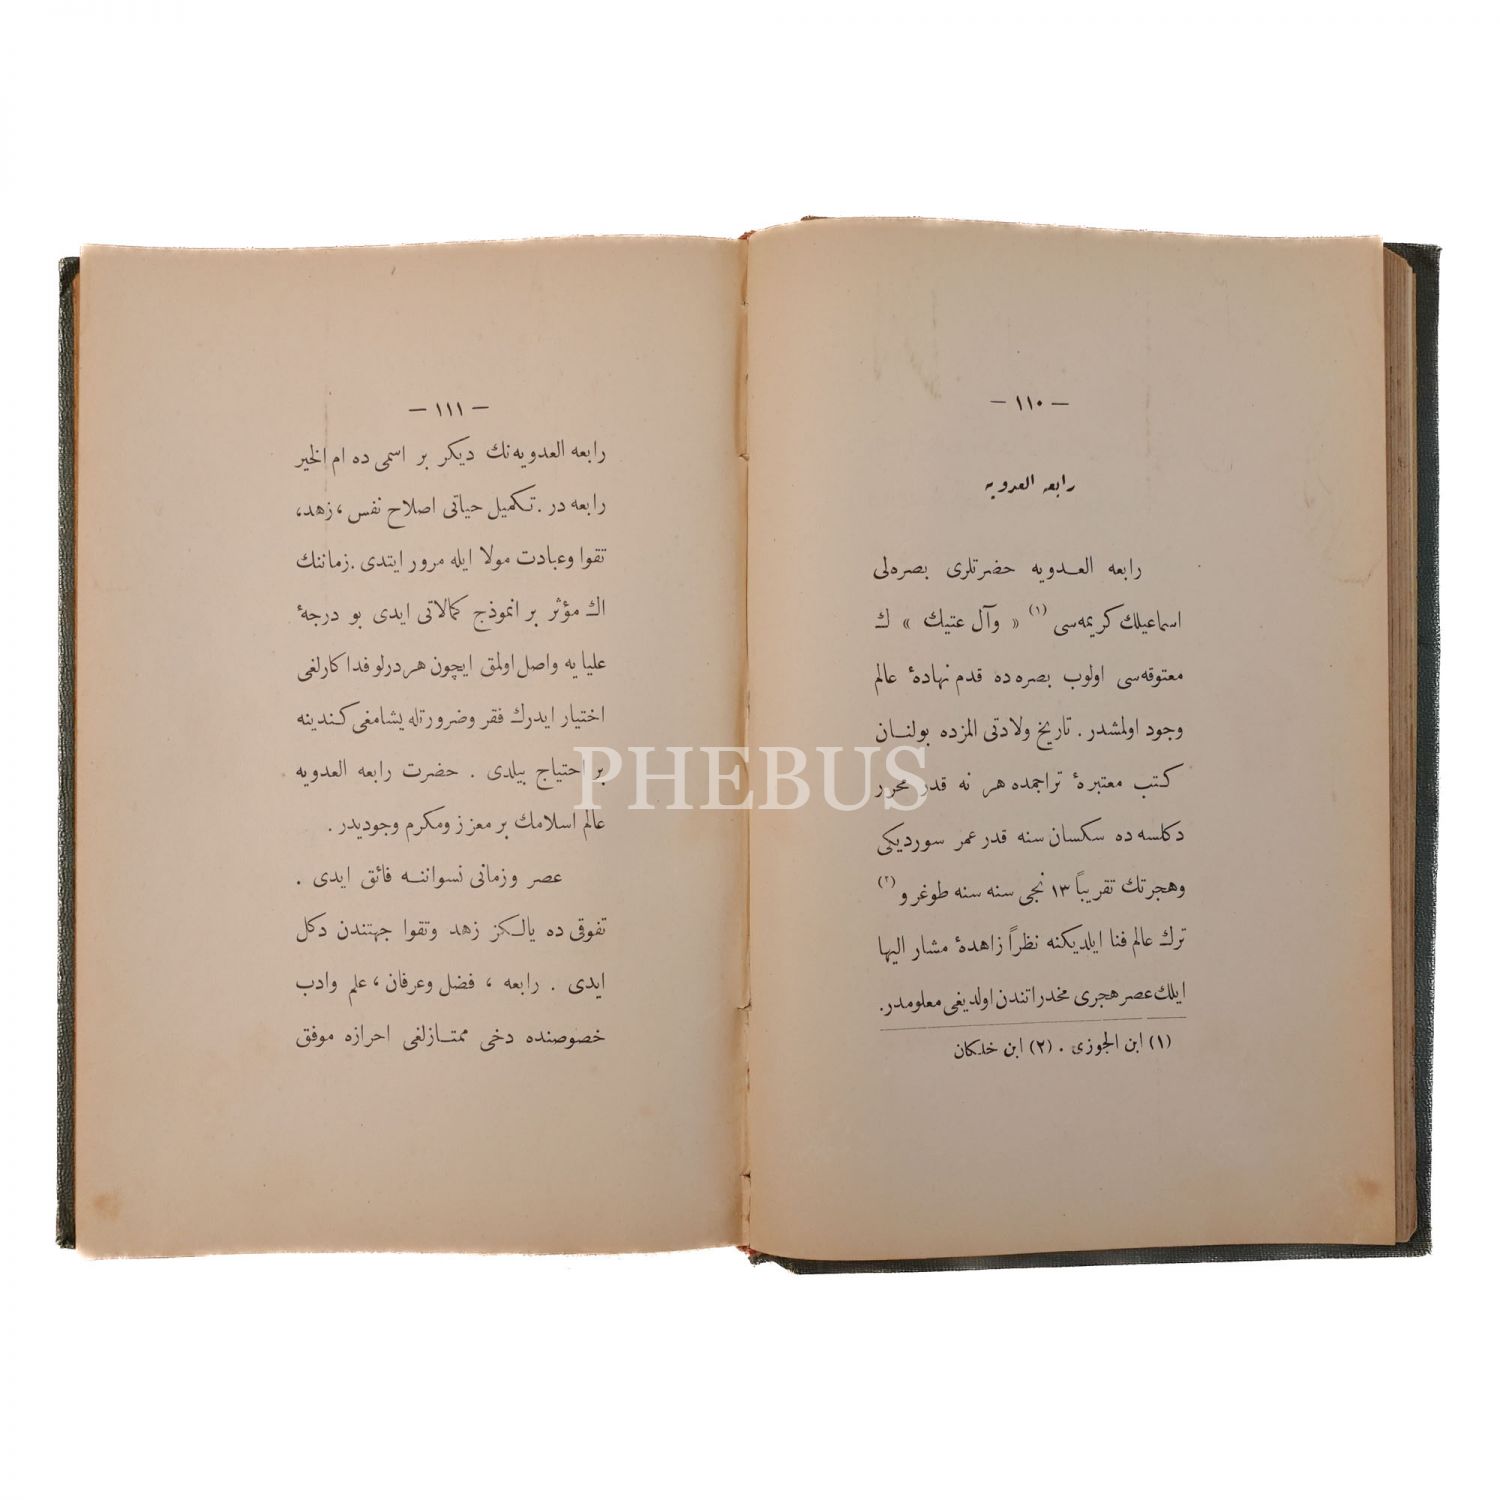 — ١١٠ —
رابعه العدويه
رابعه العدويه حضرتلری بصره‌لی
اسماعيلك كريمه‌سی (١) « وآل عتيك » ك
معتوقه‌سی اولوب بصره ده قدم نهادهٔ عالم
وجود اولمشدر . تاريخ ولادتی المزده بولنان
كتب معتبرهٔ تراجمده هر نه قدر محرر
دكلسه ده سكسان سنه قدر عمر سورديكی
وهجرتك تقريباً ١٣ نجی سنه سنه طوغرو (٢)
ترك عالم فنا ايلديكنه نظراً زاهدهٔ مشار اليها
ايلك عصر هجری مخدراتندن اولديغی معلومدر.
(١) ابن الجوزی . (٢) ابن خلكان
— ١١١ —
رابعه العدويه‌نك ديكر بر اسمی ده ام الخير
رابعه در . تكميل حياتی اصلاح نفس ، زهد،
تقوا وعبادت مولا ايله مرور ايتدی . زماننك
اك مؤثر بر انموذج كمالاتی ايدی بو درجهٔ
عليايه واصل اولمق ايچون هر درلو فداكارلغی
اختيار ايدرك فقر وضرورتله يشامغی كندينه
بر احتياج بيلدی . حضرت رابعه العدويه
عالم اسلامك بر معزز ومكرم وجوديدر .
عصر وزمانی نسواننه فائق ايدی .
تفوقی ده يالكز زهد وتقوا جهتندن دكل
ايدی . رابعه ، فضل وعرفان ، علم وادب
خصوصنده دخی ممتازلغی احرازه موفق
PHEBUS